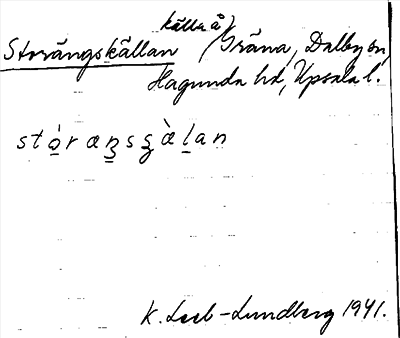 källa å)
Storängskällan (Gräna, Dalby sn,
Hagunda hd, Upsala l.
stȯ̱ræn̠sʂæ̀ḻan
K. Leeb-Lundberg 1941.